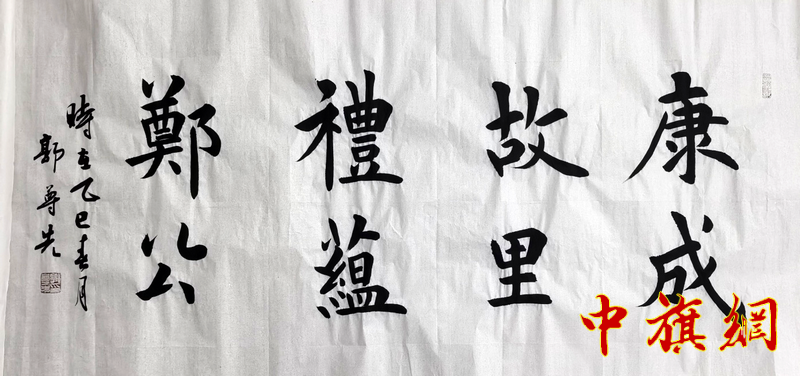 康成
故里
禮蘊
鄭公
時在乙巳春月
郭尊先
中旗網